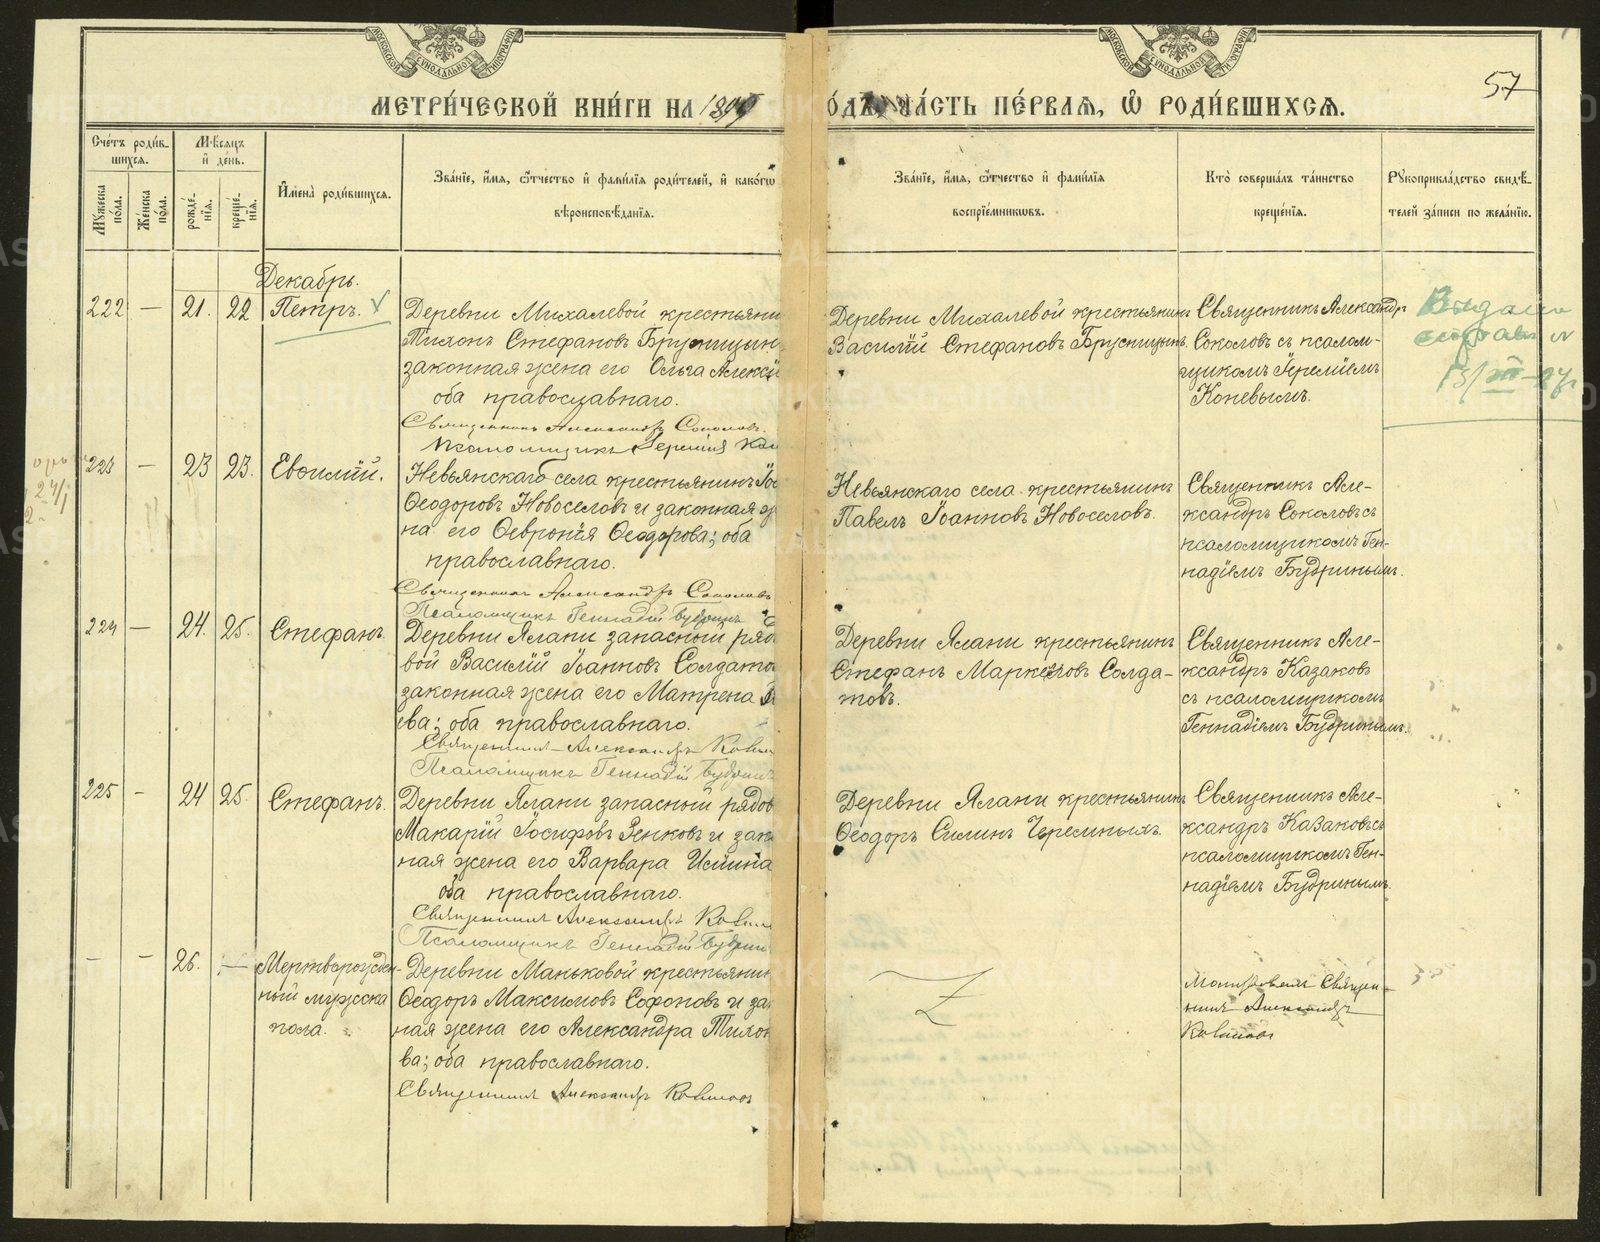 МОСКОВСКОЙ СѴНОДАЛЬНОЙ ТИПОГРАФІИ
МОСКОВСКОЙ СѴНОДАЛЬНОЙ ТИПОГРАФІИ
57
МЕТРИ́ЧЕСКОЙ КНИ́ГИ НА 1899
ОДЪ, ЧА́СТЬ ПЕ́РВАѦ, Ѽ РОДИ́ВШИХСѦ.
Сче́тъ роди́в-
шихся.
Мѣ́сяцъ
и҆ де́нь.
Мꙋ́жеска по́ла.
Же́нска по́ла.
рожде́-нїѧ.
креще́-нїѧ.
И҆мена̀ роди́вшихся.
Зва́нїе, и҆́мѧ, ѻ҆́тчество и҆ фами́лїѧ роди́телей, и҆ како́гѡ
вѣроисповѣ́данїѧ.
Зва́нїе, и҆́мѧ, ѻ҆́тчество и҆ фами́лїѧ
воспрїе́мникѡвъ.
Кто̀ соверша́лъ та́инство
креще́нїѧ.
Рꙋкоприкла́дство свидѣ́-
телей за́писи по жела́нїю.
Декабрь.
222 — 21. 22 Петръ.
Деревни Михалевой крестьяни
Тихонъ Стефановъ Брусницын
законная жена его Ольга Алексі
оба православнаго.
Священникъ Александръ Соколовъ.
Псаломщикъ Іеремія Кон
Деревни Михалевой крестьянинъ
Василій Стефановъ Брусницынъ.
Священникъ Александръ
Соколовъ съ псалом-
щикомъ Іереміемъ
Коневымъ.
Выдана
справка
223 — 23 23. Евфилій.
Невьянскаго села крестьянинъ Іос
Ѳеодоровъ Новоселовъ и законная ж
на его Ѳевронія Ѳеодорова; оба
православнаго.
Священникъ Александръ Соколовъ
Псаломщикъ Геннадій Будринъ
Невьянскаго села крестьянинъ
Павелъ Іоанновъ Новоселовъ.
Священникъ Але-
ксандръ Соколовъ съ
псаломщикомъ Ген-
надіемъ Будринымъ.
224 — 24. 25. Стефанъ.
Деревни Ялани запасный ряд
вой Василій Іоанновъ Солдато
законная жена его Матрена
ева; оба православнаго.
Священникъ Александръ
Псаломщикъ Геннадій Будринъ
Деревни Ялани крестьянинъ
Стефанъ Маркеловъ Солда-
товъ.
Священникъ Але-
ксандръ Казаковъ
съ псаломщикомъ
Геннадіемъ Будринымъ.
225 — 24 25. Стефанъ.
Деревни Ялани запасный рядов
Макарій Іосифовъ Зенковъ и зак
ная жена его Варвара
оба православнаго.
Священникъ Александръ
Псаломщикъ Геннадій Будрин
Деревни Ялани крестьянинъ
Ѳеодоръ Силинъ Черемныхъ.
Священникъ Але-
ксандръ Казаковъ съ
псаломщикомъ Ген-
надіемъ Будринымъ.
— — 26. — Мертворожден-
ный мужска
пола.
Деревни Маньковой крестьянин
Ѳеодоръ Максимовъ Софоновъ и за
ная жена его Александра Тихон
ва; оба православнаго.
Священникъ Александръ
Священ-
никъ Александръ